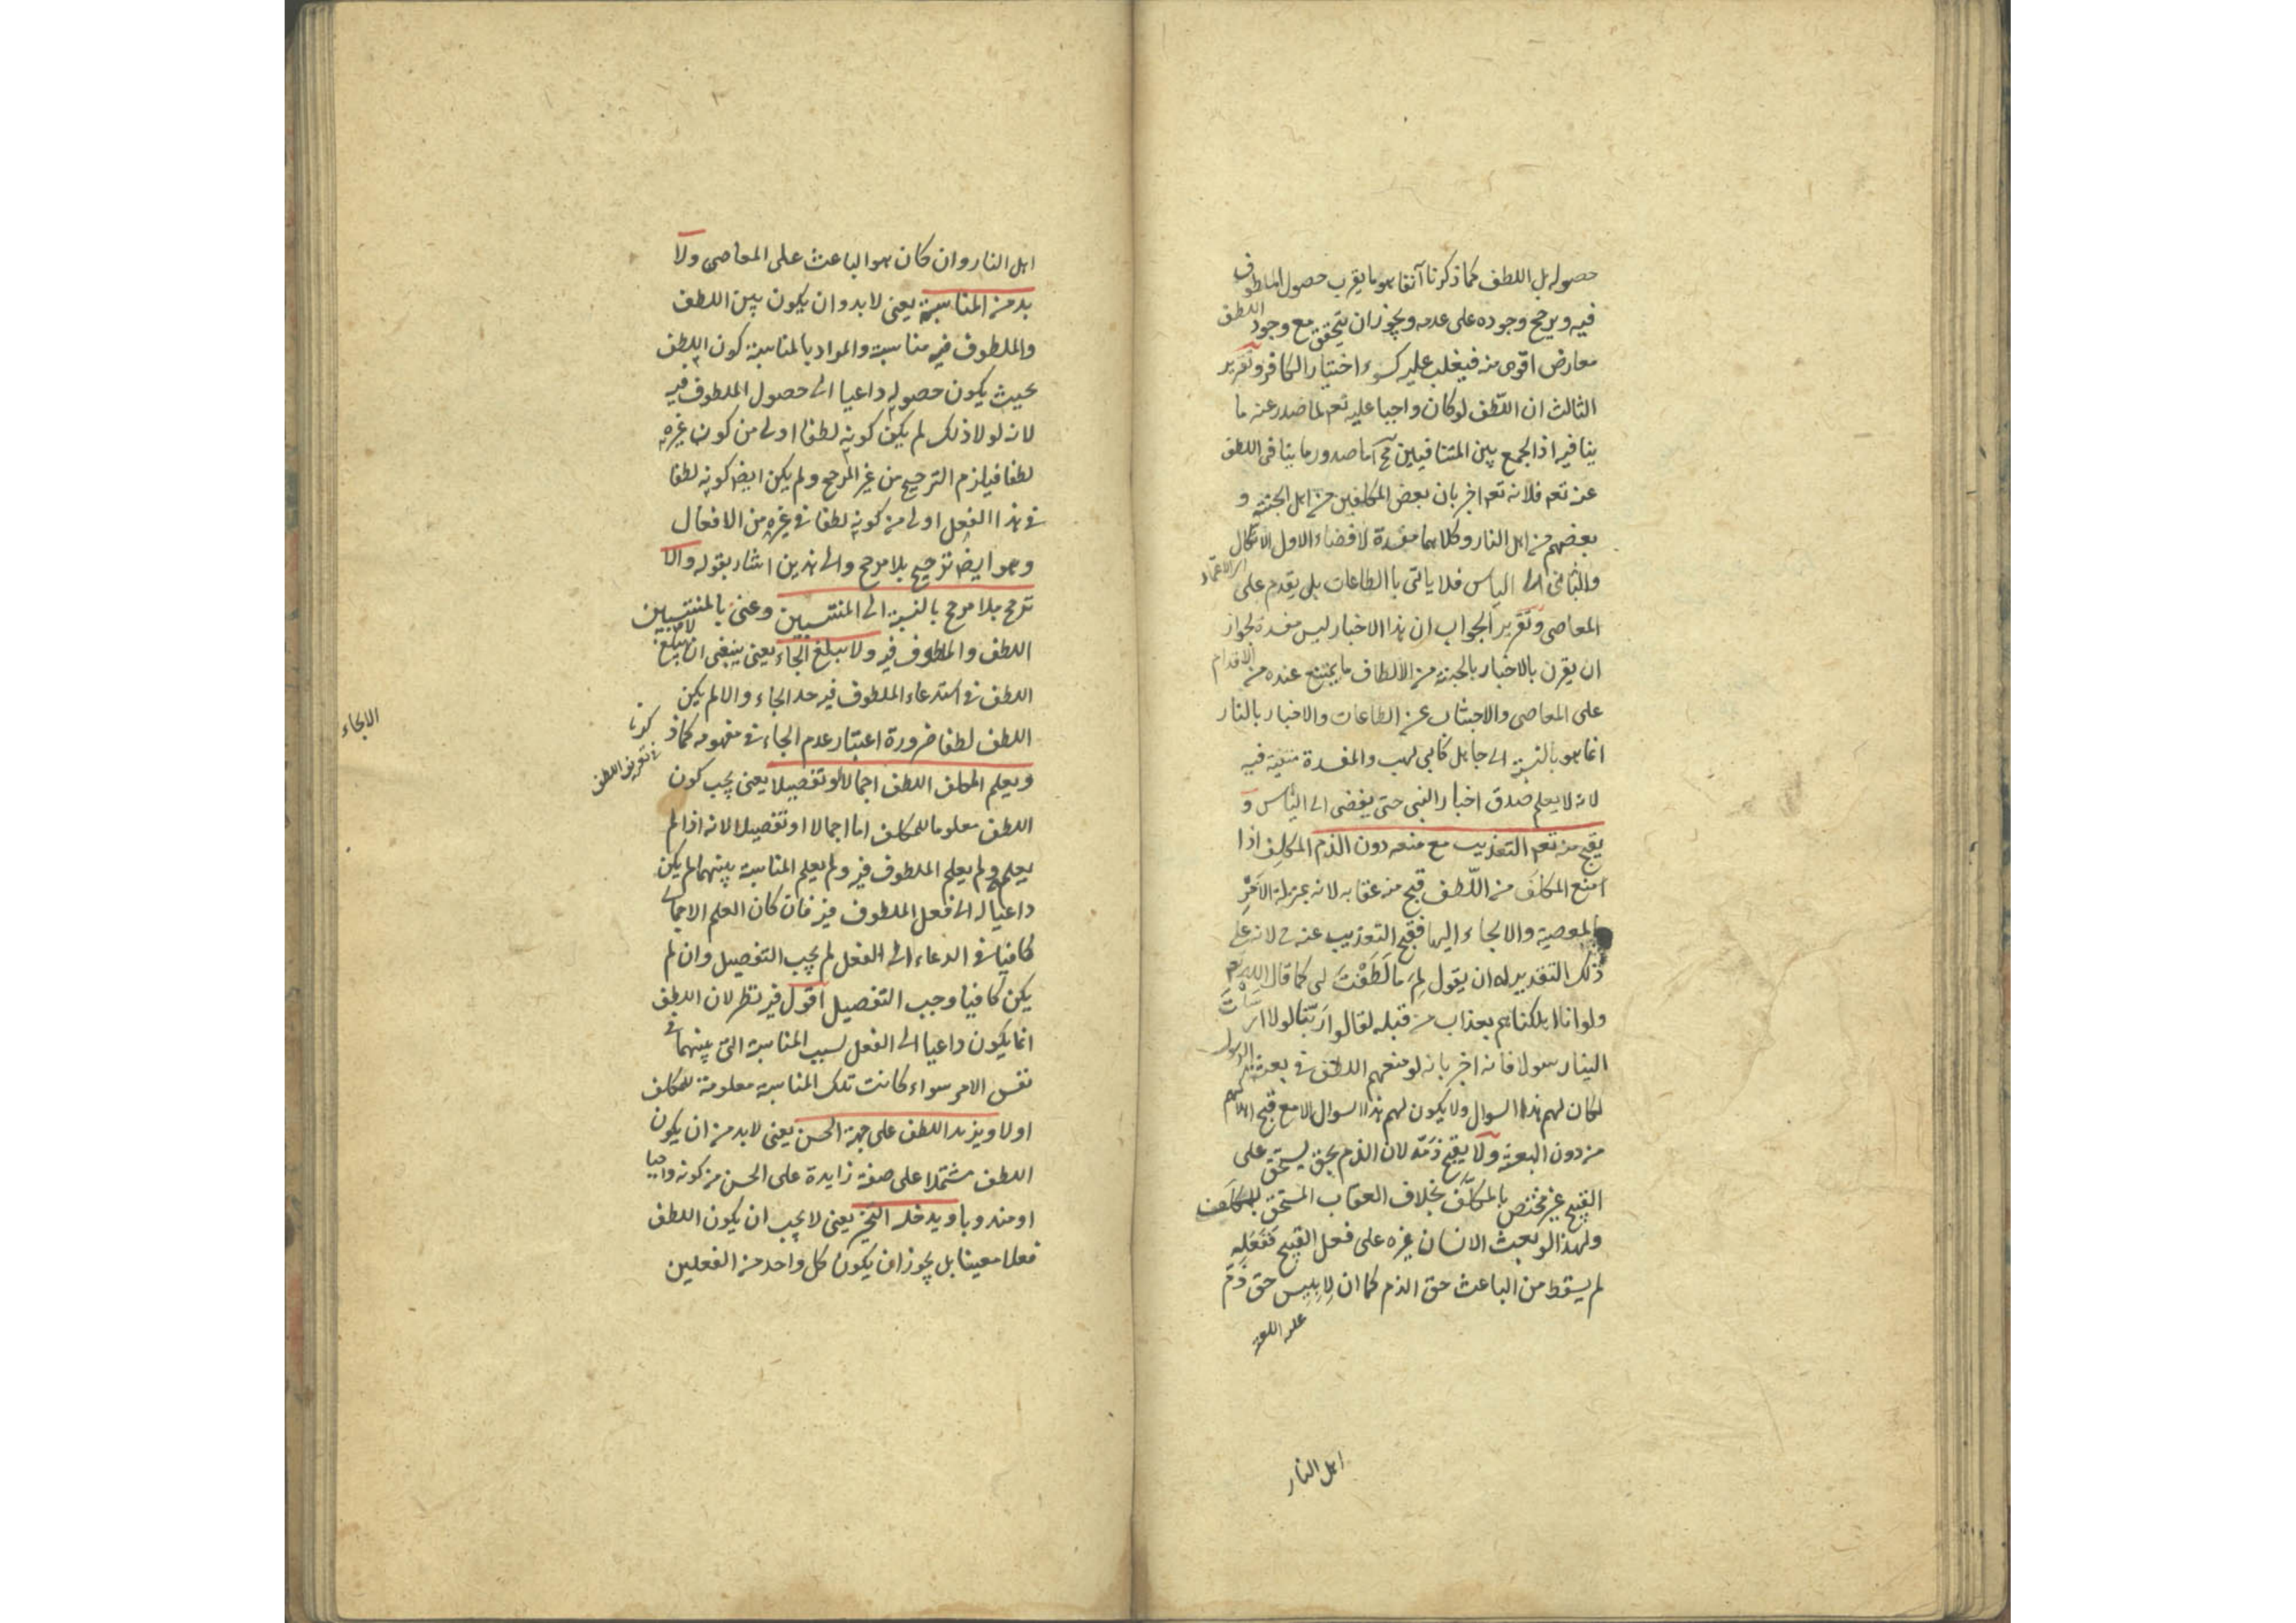 حصوله بل اللطف كما ذكرنا آنفا هو ما يقرب حصول الملطوف
فيه ويرجح وجوده على عدمه ويجوز ان يتحقق مع وجود اللطف
معارض اقوى منه فيغلب عليه كسوء اختيار الكافر وتقرير
الثالث ان اللّطف لو كان واجبا عليه تعم لما صدر عنه ما
ينافيه اذ الجمع بين المتنافيين مح اما صدور ما ينافى اللطف
عنه تعم فلانه تعم اخبر بان بعض المكلفين من اهل الجنة و
بعضهم من اهل النار وكلاهما مفسدة لافضاء الاول الاتكال
والثانى الى الياس فلا ياتى باالطاعات بل يقدم على
المعاصى وتقرير الجواب ان هذا الاخبار ليس مفسدة لجواز
ان يقرن بالاخبار بالجنة من الالطاف ما يمتنع عنده من الاقدام
على المعاصى والاجتناب عن الطاعات والاخبار بالنار
انما هو بالنسبة الى جاهل كابى لهب والمفسدة منتفية فيه
لانه لا يعلم صدق اخبار النبى حتى يفضى الى الياس و
يقبح منه تعم التعذيب مع منعه دون الذم المكلِف اذا
امنع المكلَف من اللّطف قبح منه عقابه لانه بمنزلة الامر
بالمعصية والالجاء اليها فقبح التعذيب عنه ح لانه على
ذلك التقدير له ان يقول لِمَ ما لَطَفْتَ لى كما قال الله تم
ولو انا اهلكناهم بعذاب من قبله لقالوا رَبّنا لولا ارسلت
الينا رسولا فانه اخبر بانه لو منعهم اللطف فى بعثة الرسول
لكان لهم هذا السوال ولا يكون لهم هذا السوال الا مع قبح اهلاكهم
من دون البعثة ولا يقبح ذمّه لان الذم بحق يستحق على
القبيح غير مختص بالمكلِّف بخلاف العقاب المستحق للمكلَف
ولهذا لو بعث الانسان غيره على فعل القبيح فَفَعَلِه
لم يسقط من الباعث حق الذم كما ان لِابليس حق ذمّ
عليه اللعنة
اهل النار
اهل النار وان كان هو الباعث على المعاصى ولا
بد من المناسبة يعنى لا بد وان يكون بين اللطف
والملطوف فيه مناسبة والمراد بالمناسبة كون اللطف
بحيث يكون حصوله داعيا الى حصول الملطوف فيه
لانه لولا ذلك لم يكن كونه لطفا اولى من كون غيره
لطفا فيلزم الترجيح من غير المرجح ولم يكن ايض كونه لطفا
فى هذا الفعل اولى من كونه لطفا فى غيره من الافعال
وهو ايض ترجيح بلا مرجح والى هذين اشار بقوله والا
ترجح بلا مرجح بالنسبة الى المنتسبين وعنى بالمنتسبين
اللطف والملطوف فيه ولا يبلغ الجاء يعنى ينبغى ان لا يبلغ
اللطف فى استدعاء الملطوف فيه حد الجاء والا لم يكن
اللطف لطفا ضرورة اعتبار عدم الجاء فى مفهومه كما ذكرنا
فى تعريف اللطف
الالجاء
ويعلم المكلف اللطف اجمالا او تفصيلا يعنى يجب كون
اللطف معلوما للمكلف اما اجمالا او تفصيلا لانه اذا لم
يعلمه ولم يعلم الملطوف فيه ولم يعلم المناسبة بينهما لم يكن
داعيا له الى فعل الملطوف فيه فان كان العلم الاجمالى
كافيا فى الدعاء الى الفعل لم يجب التفصيل وان لم
يكن كافيا وجب التفصيل اقول فيه نظر لان اللطف
انما يكون داعيا الى الفعل لسبب المناسبة التى بينهما فى
نفس الامر سواء كانت تلك المناسبة معلومة للمكلف
اولا ويزيد اللطف على جهة الحسن يعنى لا بد من ان يكون
اللطف مشتملا على صفة زايدة على الحسن من كونه واجبا
او مندوبا ويدخله التخير يعنى لا يجب ان يكون اللطف
فعلا معينا بل يجوز ان يكون كل واحد من الفعلين